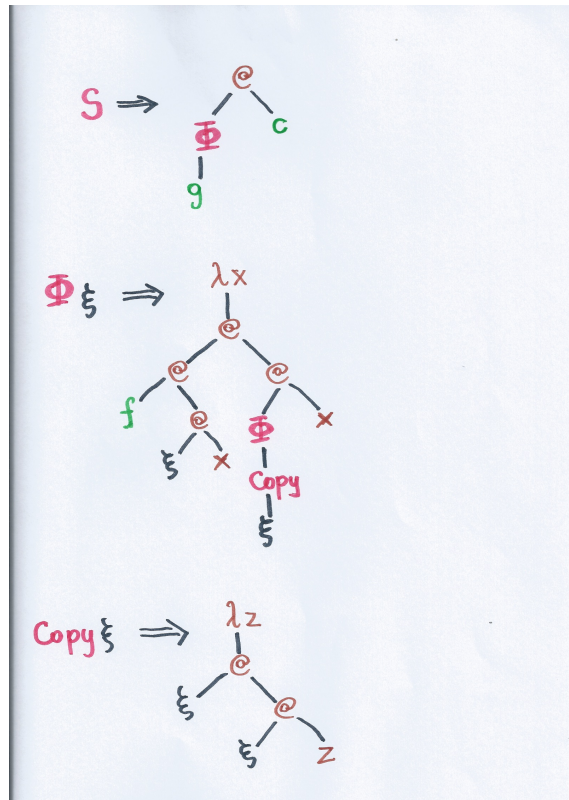 S ⟹ @
Φ c
g
Φ ξ ⟹ λx
@
@ @
f @ Φ x
ξ x Copy
ξ
Copy ξ ⟹ λz
@
ξ @
ξ z